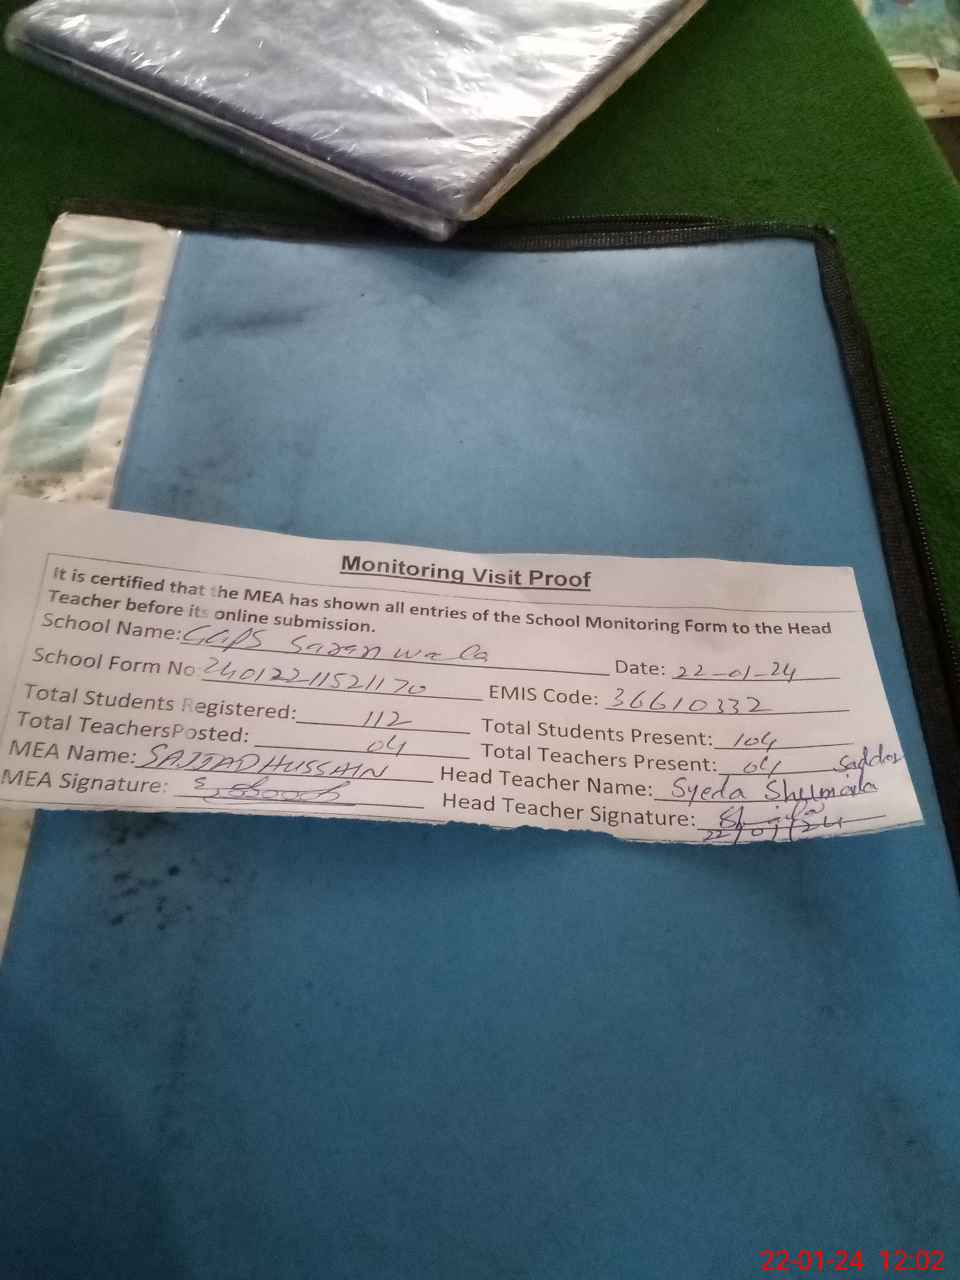 Monitoring Visit Proof
It is certified that the MEA has shown all entries of the School Monitoring Form to the Head
Teacher before its online submission.
School Name: GGPS Saranwala Date: 22-01-24
School Form No 2401221152170 EMIS Code: 36610332
Total Students Registered: 112 Total Students Present: 104
Total TeachersPosted: 04 Total Teachers Present: 04
MEA Name: SAJJAD HUSSAIN Head Teacher Name: Syeda Shumaila
MEA Signature: Head Teacher Signature:
22/01/24
22-01-24 12:02